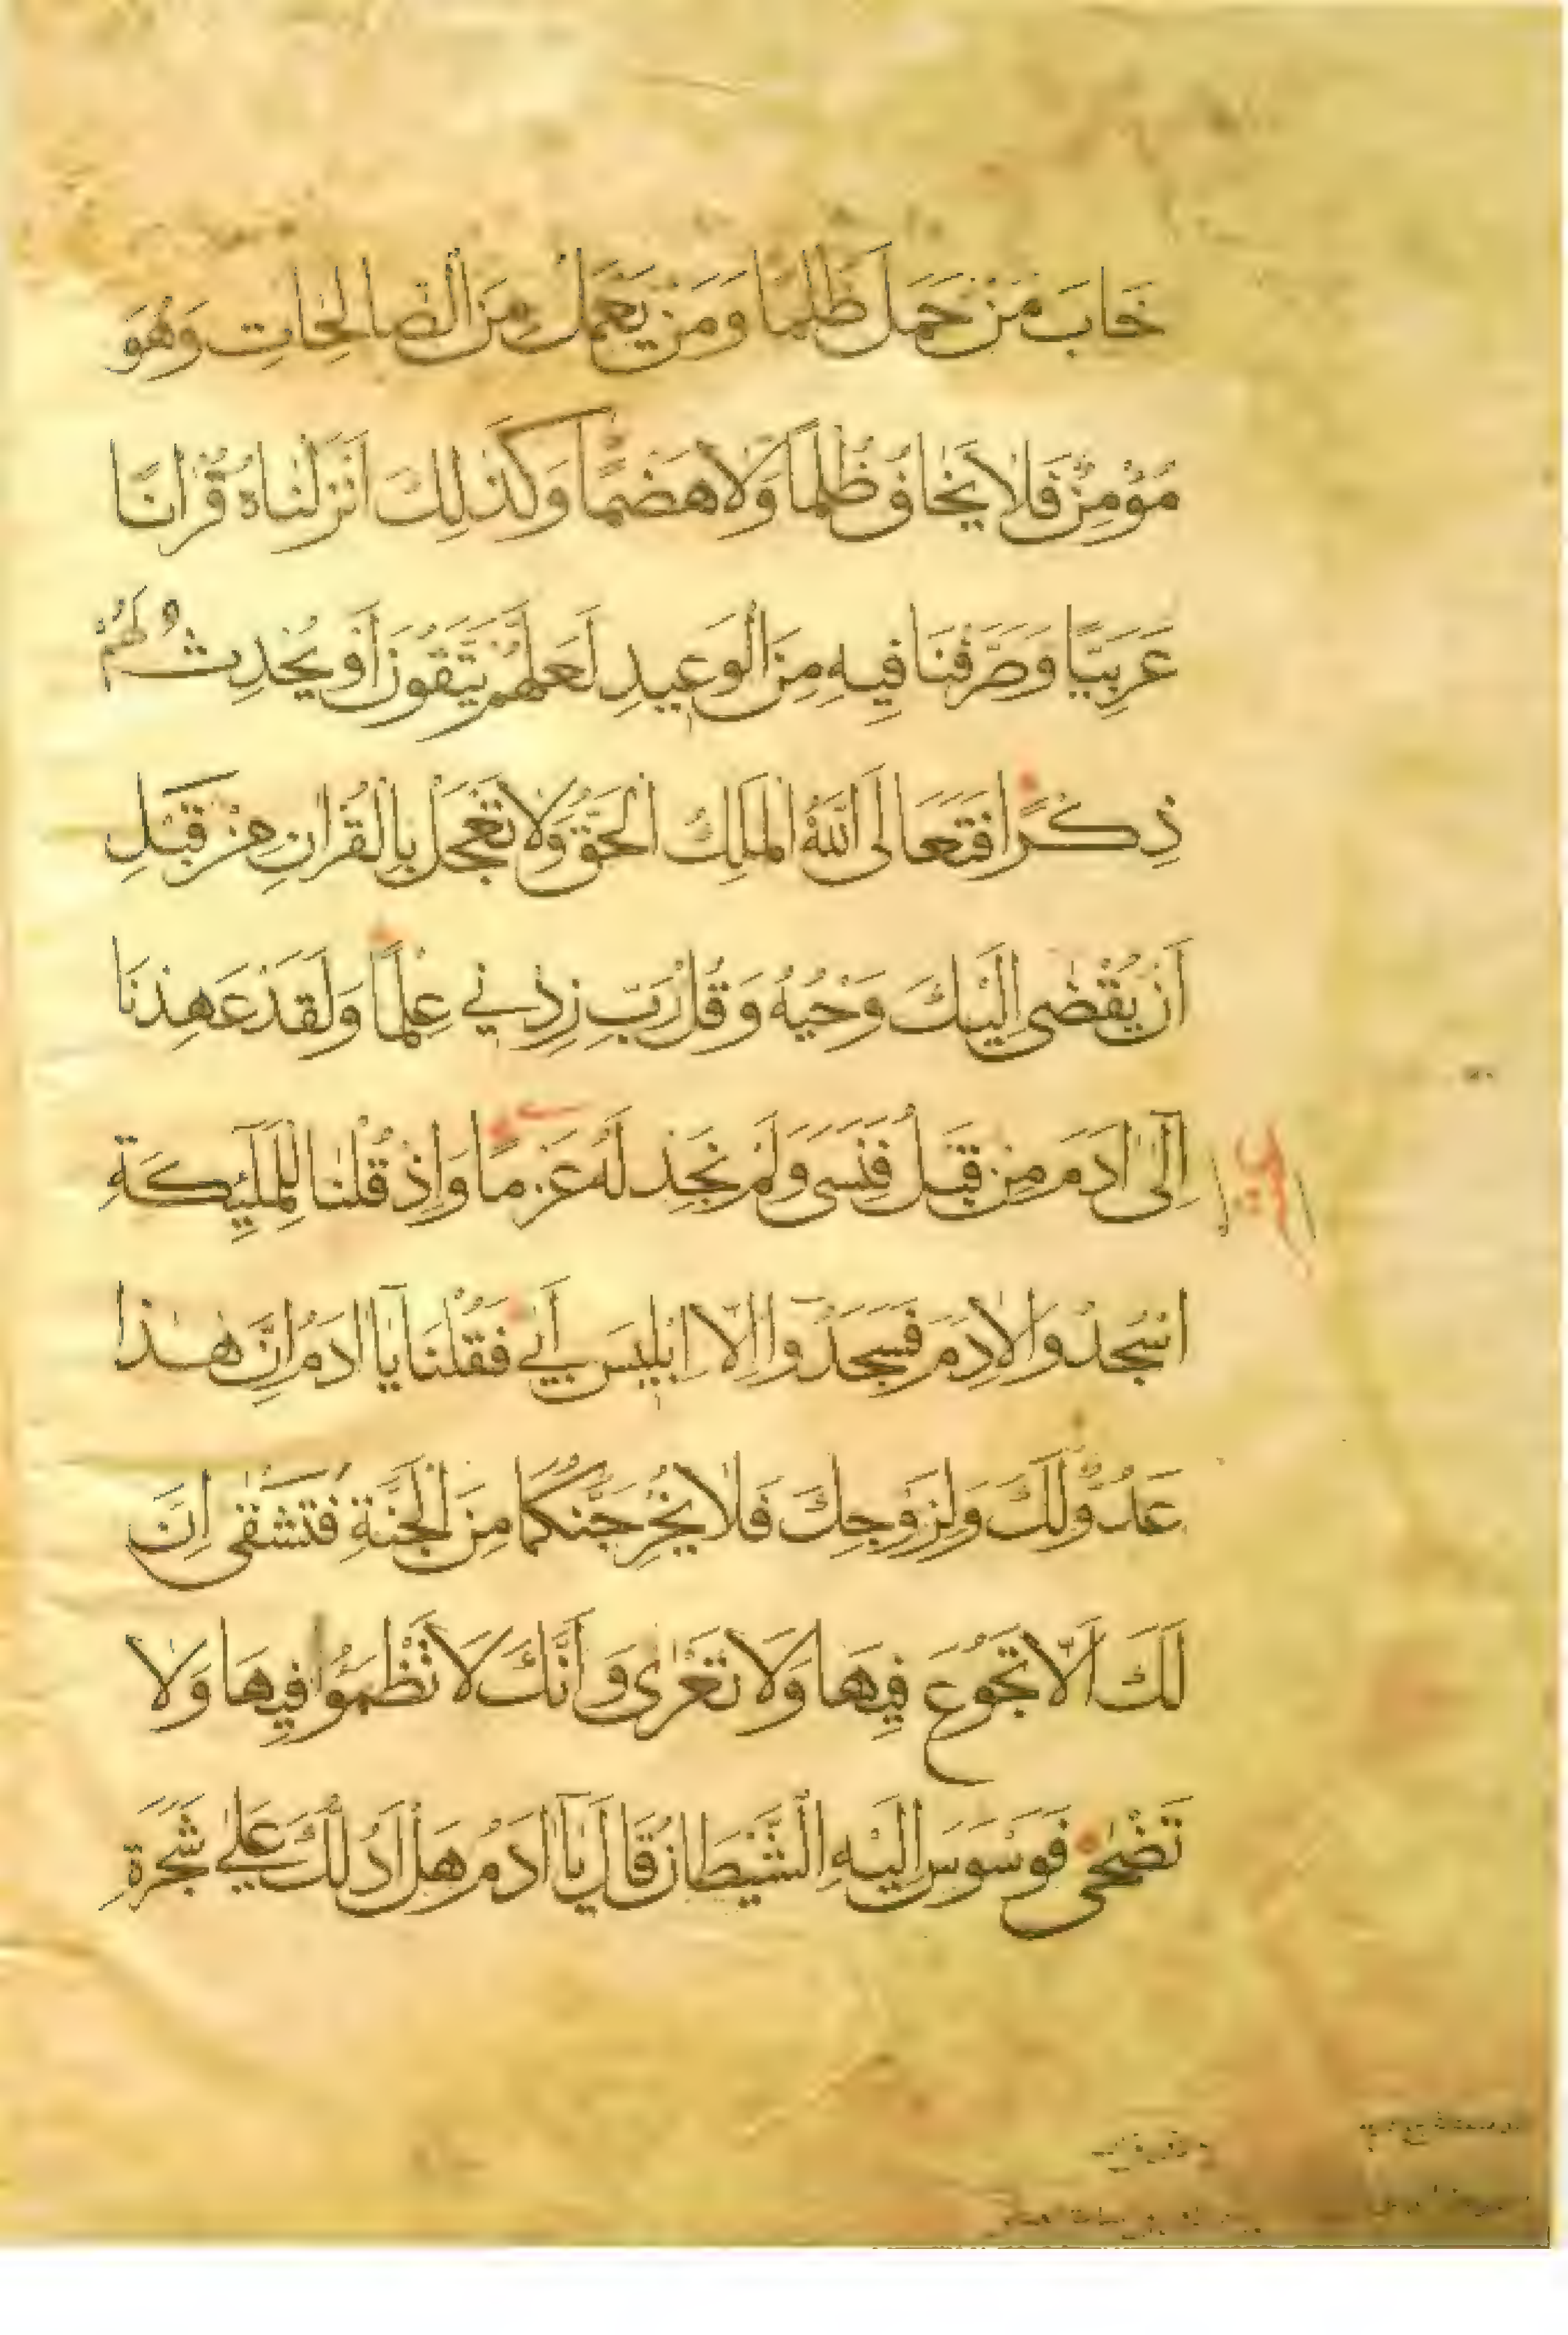 خَابَ مَنْ حَمَلَ ظُلْمًا وَمَنْ يَعْمَلْ مِنَ الصَّالِحَاتِ وَهُوَ
مُؤْمِنٌ فَلَا يَخَافُ ظُلْمًا وَلَا هَضْمًا وَكَذٰلِكَ اَنْزَلْنَاهُ قُرْاٰنًا
عَرَبِيًّا وَصَرَّفْنَا فِيهِ مِنَ الْوَعِيدِ لَعَلَّهُمْ يَتَّقُونَ اَوْ يُحْدِثُ لَهُمْ
ذِكْرًا فَتَعَالَى اللّٰهُ الْمَلِكُ الْحَقُّ وَلَا تَعْجَلْ بِالْقُرْاٰنِ مِنْ قَبْلِ
اَنْ يُقْضٰى اِلَيْكَ وَحْيُهُ وَقُلْ رَبِّ زِدْنِي عِلْمًا وَلَقَدْ عَهِدْنَا
اِلٰى اٰدَمَ مِنْ قَبْلُ فَنَسِيَ وَلَمْ نَجِدْ لَهُ عَزْمًا وَاِذْ قُلْنَا لِلْمَلٰٓئِكَةِ
اسْجُدُوا لِاٰدَمَ فَسَجَدُٓوا اِلَّٓا اِبْلِيسَ اَبٰى فَقُلْنَا يَٓا اٰدَمُ اِنَّ هٰذَا
عَدُوٌّ لَكَ وَلِزَوْجِكَ فَلَا يُخْرِجَنَّكُمَا مِنَ الْجَنَّةِ فَتَشْقٰى اِنَّ
لَكَ اَلَّا تَجُوعَ فِيهَا وَلَا تَعْرٰى وَاَنَّكَ لَا تَظْمَؤُا فِيهَا وَلَا
تَضْحٰى فَوَسْوَسَ اِلَيْهِ الشَّيْطَانُ قَالَ يَٓا اٰدَمُ هَلْ اَدُلُّكَ عَلٰى شَجَرَةِ